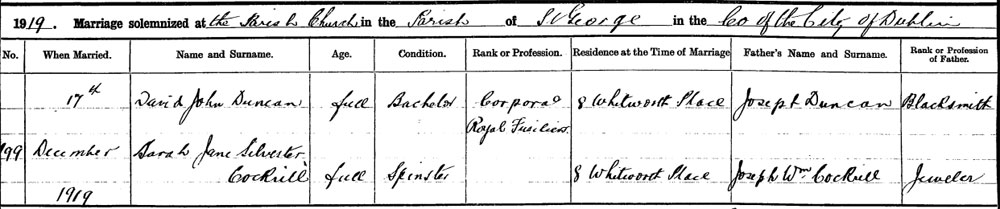 1919. Marriage solemnized at the Parish Church in the Parish of St George in the Co of the City of Dublin
No. When Married. Name and Surname. Age. Condition. Rank or Profession. Residence at the Time of Marriage Father's Name and Surname. Rank or Profession of Father.
17th David John Duncan full Bachelor Corporal 8 Whitworth Place Joseph Duncan Blacksmith
Royal Fusiliers
199 December Sarah Jane Silvester
Cockrill full Spinster 8 Whitworth Place Joseph Wm Cockrill Jeweler
1919